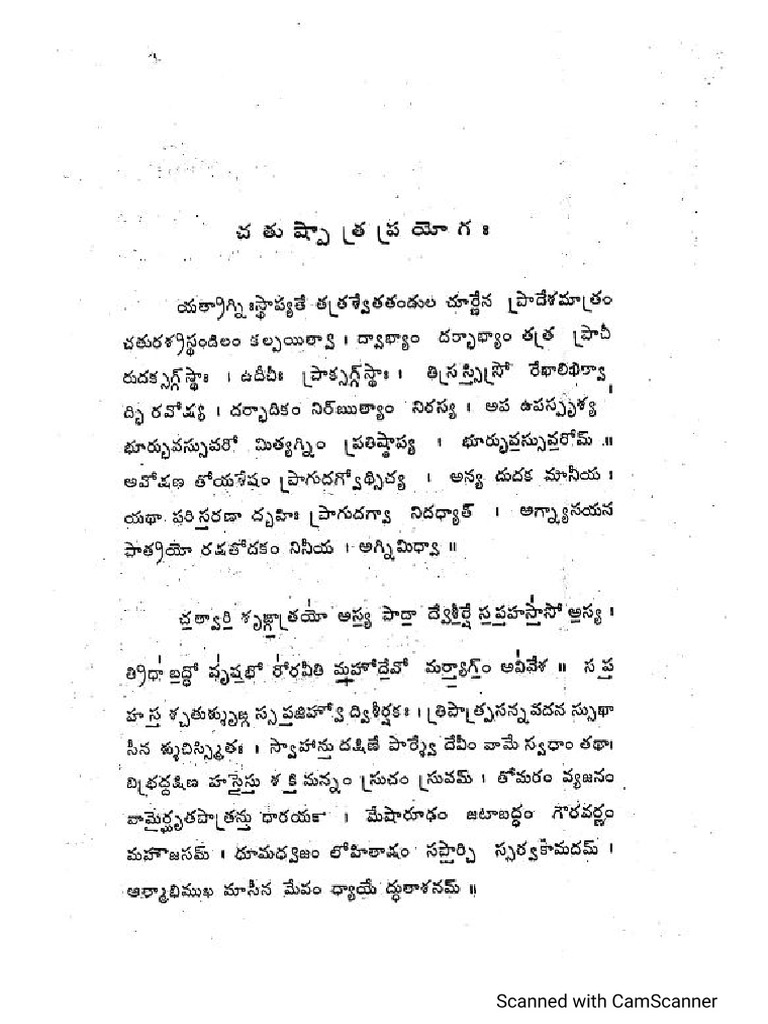 చతుష్పాత్రప్రయోగః
యత్రాగ్నిఃస్థాప్యతే తత్రశ్వేతతండుల చూర్ణేన ప్రాదేశమాత్రం
చతురశ్రస్థండిలం కల్పయిత్వా । ద్వాభ్యాం దర్భాభ్యాం తత్ర ప్రాచీ
రుదక్సగ్గ్‌స్థాః । ఉదీచీః ప్రాక్సగ్గ్‌స్థాః । తిస్రస్తిస్రో రేఖాలిఖిత్వా
ద్భి రవోక్ష్య । దర్భాదికం నిర్‌ఋత్యాం నిరస్య । అప ఉపస్పృశ్య ।
భూర్భువస్సువరో మిత్యగ్నిం ప్రతిష్ఠాప్య । భూర్భువస్సువరోమ్ ॥
అవోక్షణ తోయశేషం ప్రాగుదగ్వోథ్సిచ్య । అన్య దుదక మానీయ ।
యథా పరిస్తరణా ద్బహిః ప్రాగుదగ్వా నిదధ్యాత్ । అగ్న్యానయన
పాత్రయో రక్షతోదకం నినీయ । అగ్నిమిధ్వా ॥
చత్వారి శృఙ్గాత్రయో అస్య పాదా ద్వేశీర్షే సప్తహస్తాసో అస్య ।
త్రిధా బద్ధో వృషభో రోరవీతి మహోదేవో మర్త్యాగ్ం ఆవివేశ ॥ సప్త
హస్త శ్చతుశ్శృఙ్గ స్సప్తజిహ్వో ద్విశీర్షకః । త్రిపాత్ప్రసన్నవదన స్సుఖా
సీన శ్శుచిస్స్మితః । స్వాహాన్తు దక్షిణే పార్శ్వే దేవీం వామే స్వధాం తథా।
బిభ్రద్దక్షిణ హస్తైస్తు శక్తి మన్నం స్రుచం స్రువమ్ । తోమరం వ్యజనం
వామైర్ఘృతపాత్రన్తు ధారయన్ । మేషారూఢం జటాబద్ధం గౌరవర్ణం
మహౌజసమ్ । ధూమధ్వజం లోహితాక్షం సప్తార్చి స్సర్వకామదమ్ ।
ఆత్మాభిముఖ మాసీన మేవం ధ్యాయే ద్ధుతాశనమ్ ॥
Scanned with CamScanner